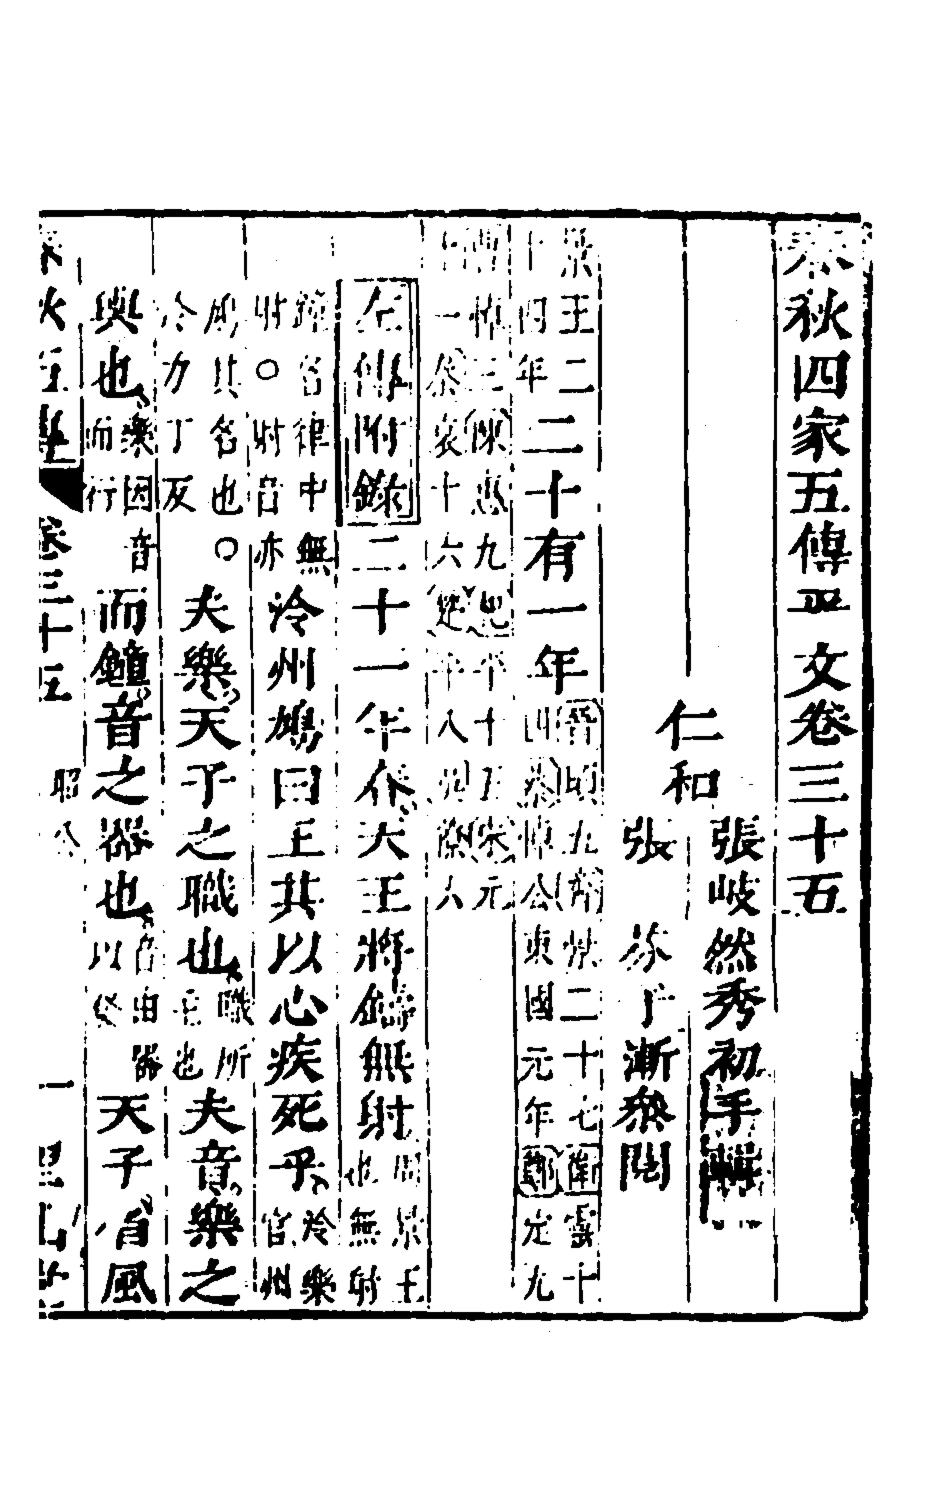 春秋四家五傳平文卷三十五
仁和
張岐然秀初手輯
張芬于漸參閱
景王二十四年二十有一年晉頃五齊景二十七衛靈十四蔡悼公東國元年鄭定九
曹悼三陳惠九杞平十五宋元十一秦哀十六楚平八吳僚六
左傳附錄二十一年春天王將鑄無射周景王也無射
鐘名律中無射〇射音亦泠州鳩曰王其以心疾死乎泠樂官州
鳩其名也〇泠力丁反夫樂天子之職也職所主也夫音樂之
輿也樂因音而行而鐘音之器也音由器以發天子省風
春秋五傳 卷三十五 昭公 一